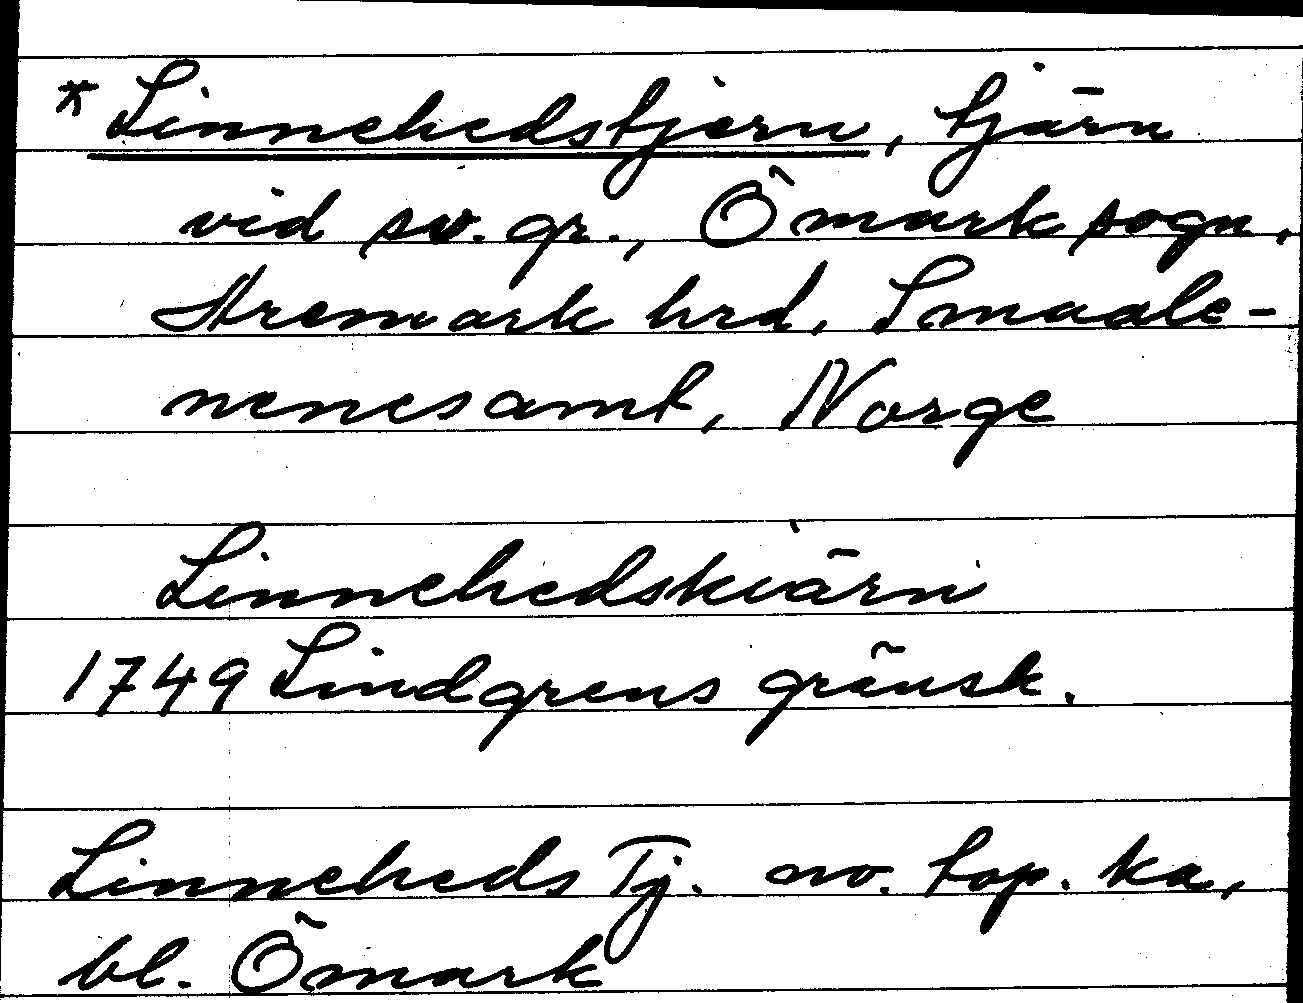 * Linnehedstjern, tjärn
vid sv. gr., Ömark sogn,
Aremark hrd, Smaale-
nenesamt, Norge
Linnehedskiärn
1749 Lindgrens gränsk.
Linneheds Tj. no. top. ka,
bl. Ömark